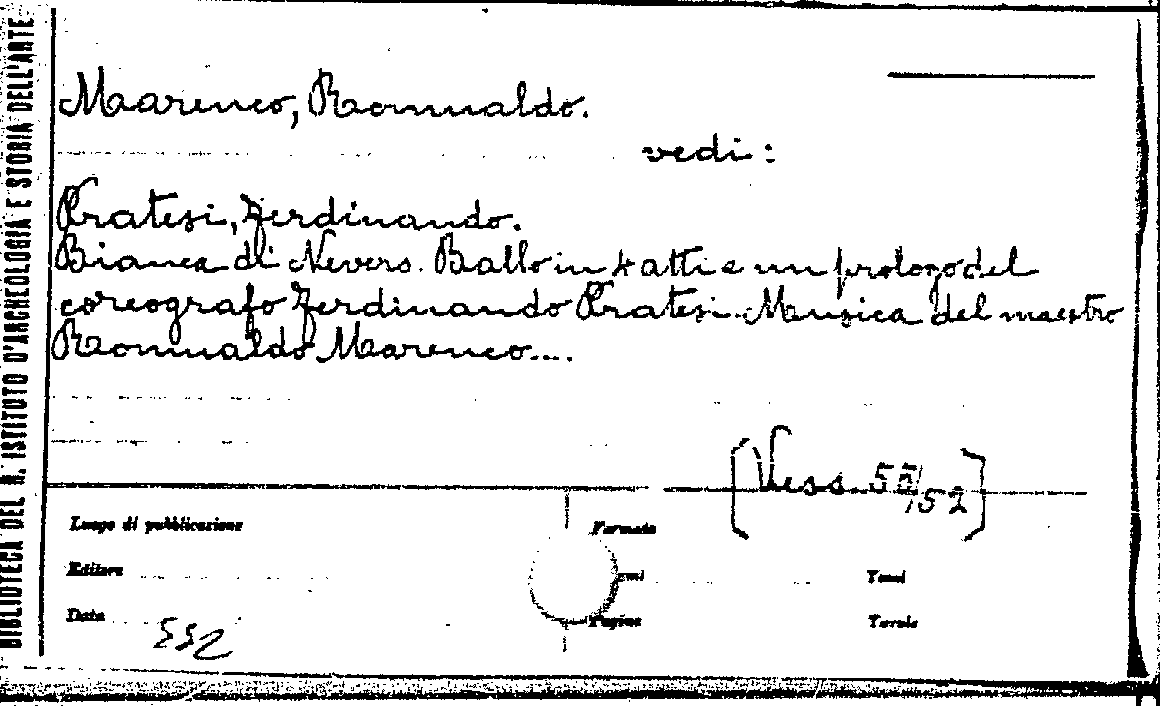 BIBLIOTECA DEL R. ISTITUTO D'ARCHEOLOGIA E STORIA DELL'ARTE
Marenco, Romualdo.
vedi:
Pratesi, Ferdinando.
Bianca di Nevers. Ballo in 4 atti e un prologo del
coreografo Ferdinando Pratesi. Musica del maestro
Romualdo Marenco....
[Vess. 55/52]
Luogo di pubblicazione
Formato
Editore
Tomi
Data
Pagine
Tavole
552